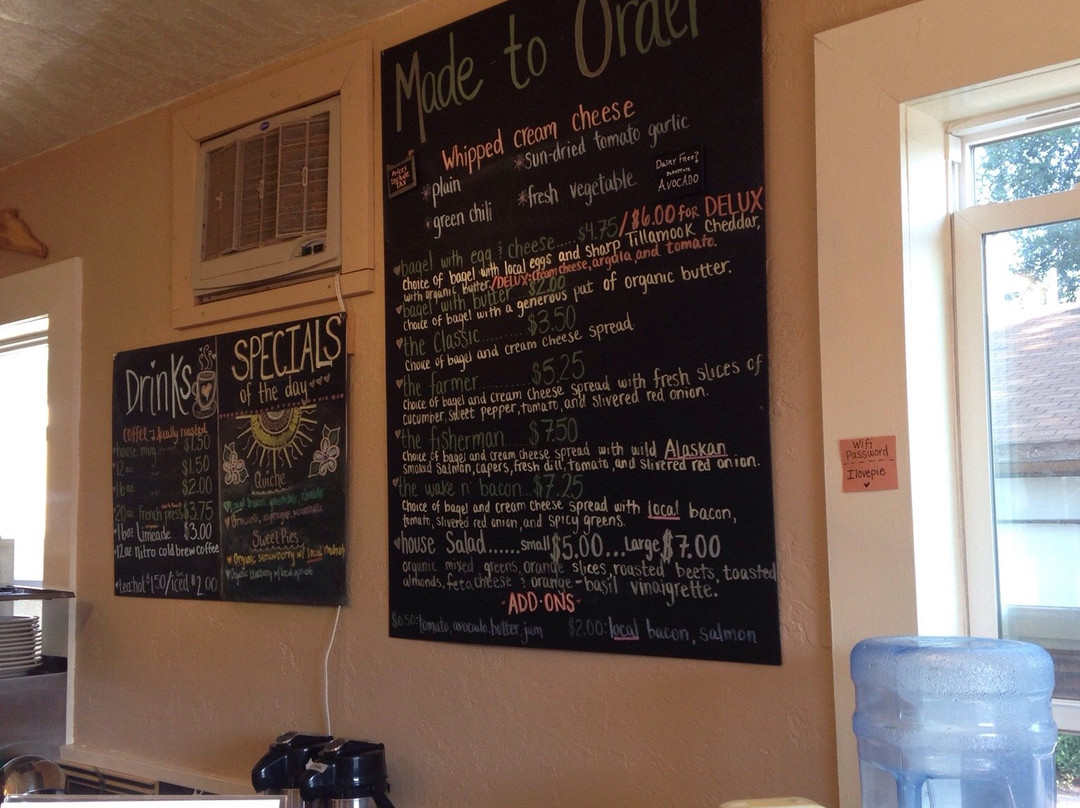 Made to Order
Whipped cream cheese
*plain *sun-dried tomato garlic
green chili *fresh vegetable
Prices Include Tax
Dairy Free?
AVOCADO
bagel with egg & cheese.....$4.75/$6.00 for DELUX
Choice of bagel with local eggs and sharp Tillamook Cheddar,
with organic butter./DELUX:cream cheese, arugula and tomato.
bagel with butter...$2.00
Choice of bagel with a generous pat of organic butter.
the Classic........$3.50
Choice of bagel and cream cheese spread.
the farmer..........$5.25
Choice of bagel and cream cheese spread with fresh slices of
cucumber, sweet pepper, tomato, and slivered red onion.
the fisherman....$7.50
Choice of bagel and cream cheese spread with wild Alaskan
smoked salmon, capers, fresh dill, tomato, and slivered red onion.
the wake n' bacon...$7.25
Choice of bagel and cream cheese spread with local bacon,
tomato, slivered red onion, and spicy greens.
house Salad......small $5.00...Large $7.00
organic mixed greens, orange slices, roasted beets, toasted
almonds, feta cheese & orange-basil vinaigrette.
-ADD-ONS-
$0.50: tomato, avocado, butter, jam $2.00: local bacon, salmon
Drinks
coffee locally roasted
house mug $1.50
12oz $1.50
16oz $2.00
20oz french press $3.75
16oz Limeade... $3.00
12oz nitro cold brew coffee
tea: hot $1.50/iced $2.00
SPECIALS
of the day
Quiche
Sweet Pies
Organic strawberry w/ local rhubarb
Wifi
Password
Ilovepie